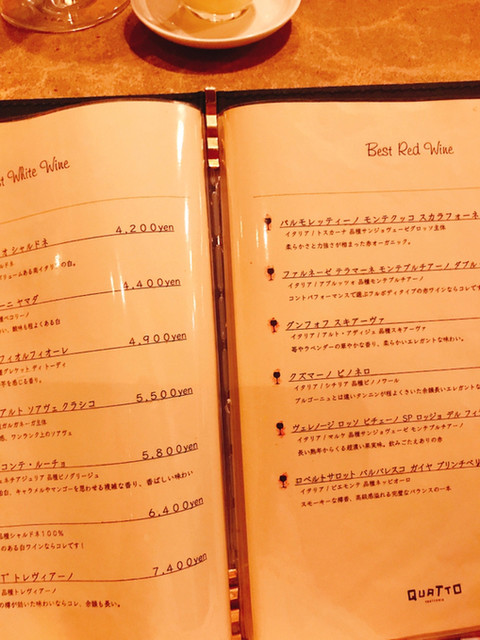 White Wine
4,200yen
シャルドネ
4,400yen
ーニ ヤマダ
4,900yen
フィオルフィオーレ
5,500yen
アルト ソアヴェ クラシコ
感、ワンランク上のソアヴェ
5,800yen
コンテ・ルーチョ
キャラメルやマンゴーを思わせる複雑な香り、香ばしい味わい
6,400yen
品種シャルドネ100%
のある白ワインならコレです!
7,400yen
トレヴィアーノ
品種トレヴィアーノ
の樽が効いた味わいならコレ、余韻も長い。
Best Red Wine
パルモレッティーノ モンテクッコ スカラフォーネ
イタリア/トスカーナ 品種サンジョヴェーゼグロッソ主体
柔らかさと力強さが相まった赤オーガニック。
ファルネーゼ テラマーネ モンテプルチアーノ ダブル
イタリア/アブルッツォ 品種モンテプルチアーノ
コストパフォーマンスで選ぶフルボディタイプの赤ワインならコレです
グンフォフ スキアーヴァ
イタリア/アルト・アディジェ 品種スキアーヴァ
苺やラベンダーの華やかな香り、柔らかいエレガントな味わい。
クズマーノ ピノネロ
イタリア/シチリア 品種ピノノワール
ブルゴーニュとは違いタンニンが程よくきいた余韻長いエレガントな
ヴェレノージ ロッソ ピチェーノ SP ロッジョ デル フィ
イタリア/マルケ 品種サンジョヴェーゼ モンテプルチアーノ
長い熟年からくる超濃い果実味。飲みごたえありの赤
ロベルトサロット バルバレスコ ガイヤ プリンチペ
イタリア/ピエモンテ 品種ネッビオーロ
スモーキーな樽香、高級感溢れる完璧なバランスの一本
QUATTO